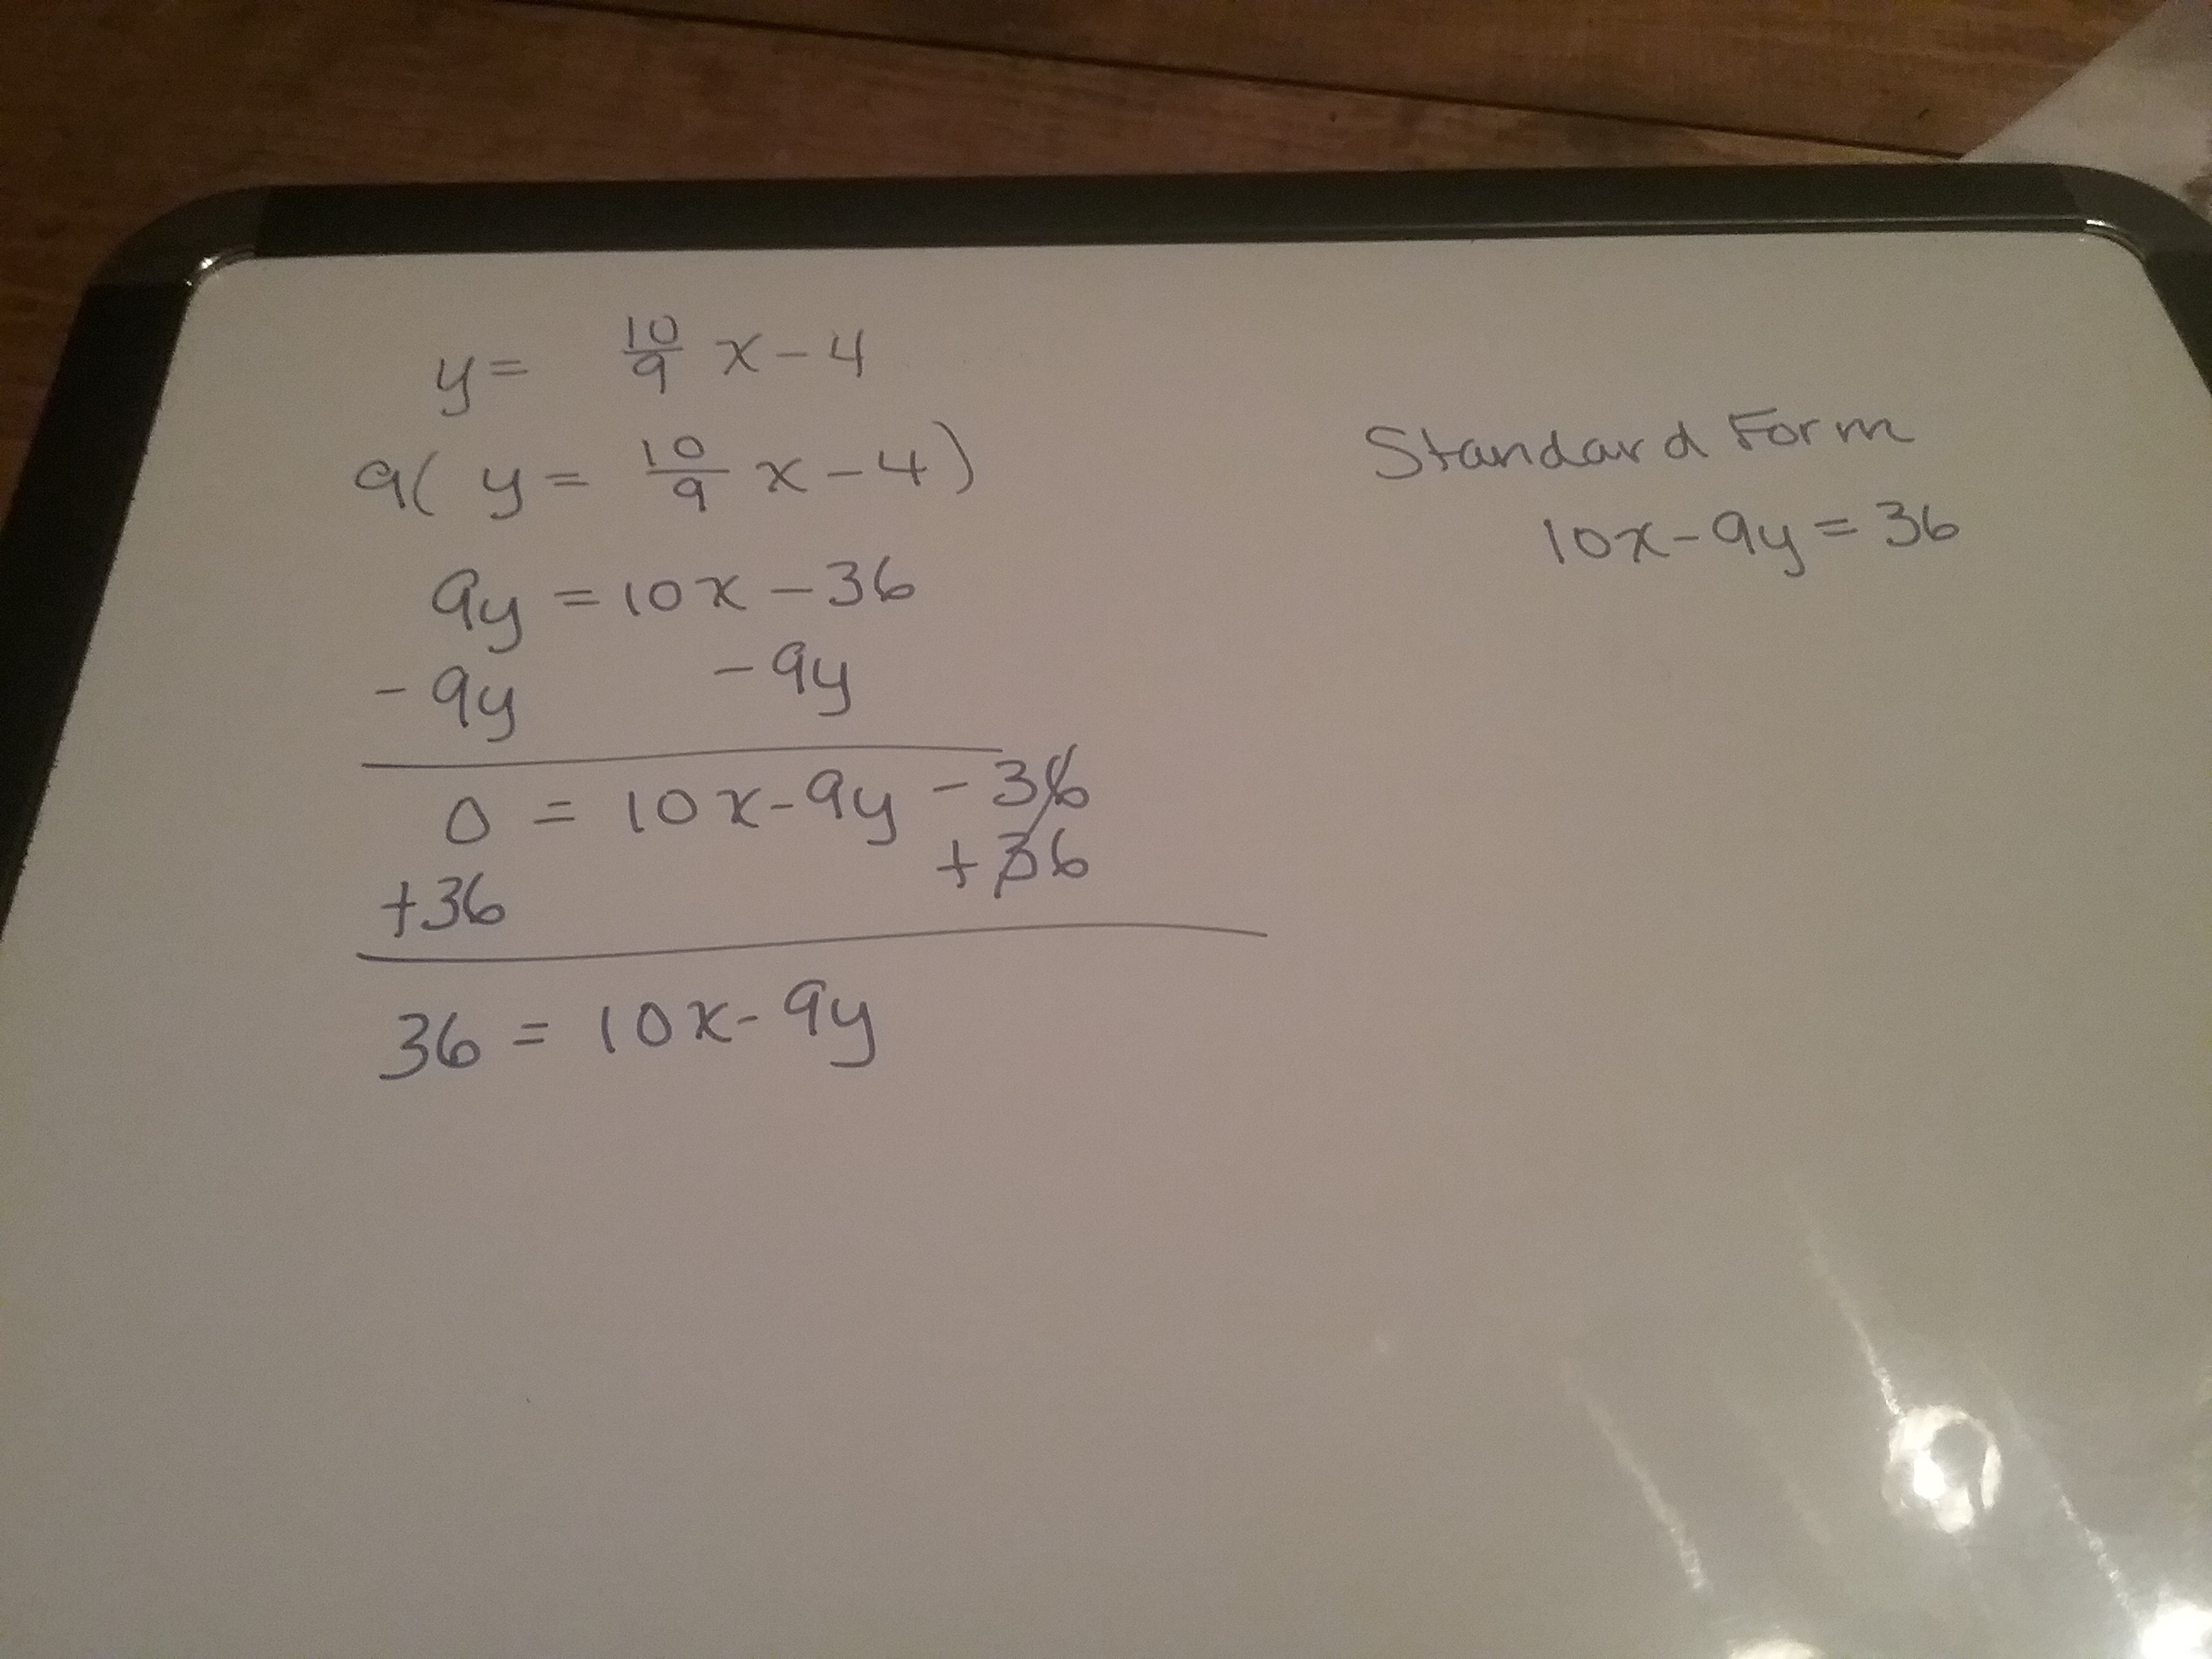 y = 10/9 x - 4
9( y = 10/9 x - 4)
9y = 10x - 36
- 9y - 9y
0 = 10x - 9y - 36
+36 + 36
36 = 10x - 9y
Standard Form
10x - 9y = 36